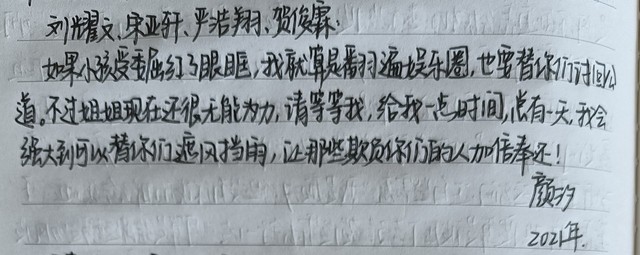 刘耀文、宋亚轩、严浩翔、贺俊霖:
如果小孩受委屈红了眼眶,我就算是翻遍娱乐圈,也要替你们讨回公
道。不过姐姐现在还很无能为力,请等等我,给我一点时间,总有一天,我会
强大到可以替你们遮风挡雨,让那些欺负你们的人加倍奉还!
颜汐
2021年.